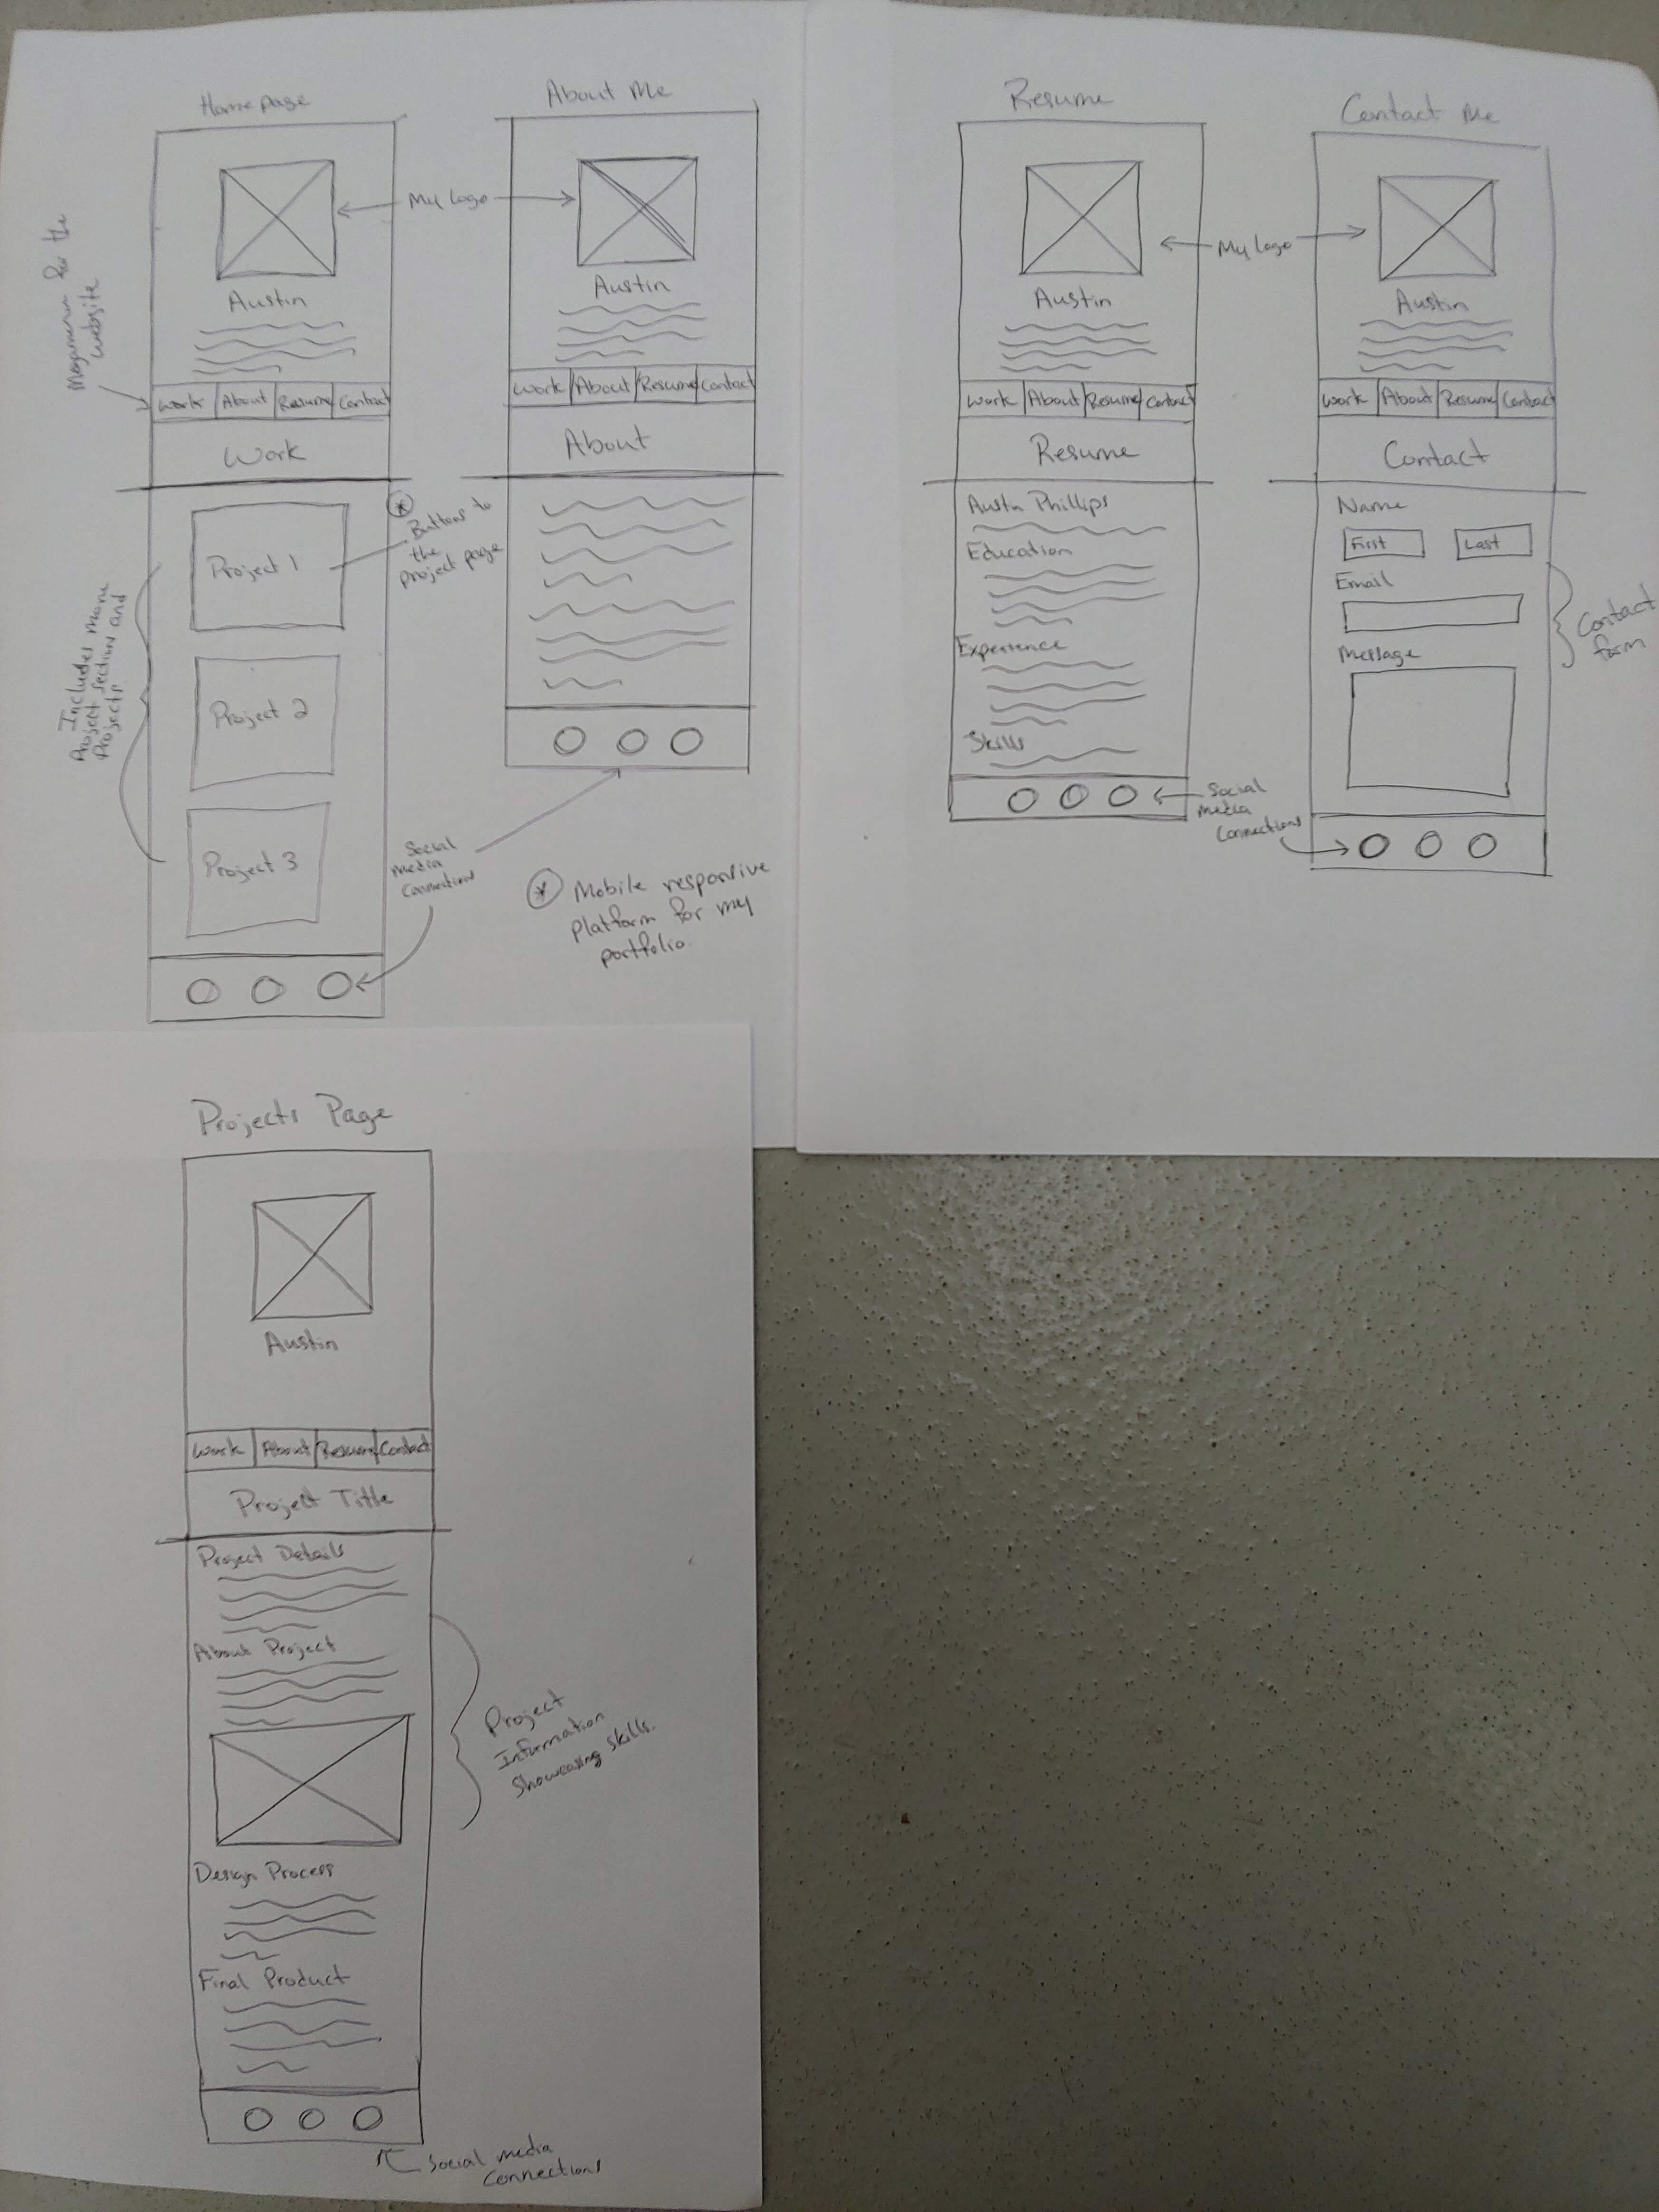 Homepage
My Logo
Austin
Megamenu for the
website
Work About Resume Contact
Work
Project 1
Project 2
Project 3
Buttons to
the
project page
Includes more
Project section and
Projects
Social
Media
Connections
About Me
Austin
Work About Resume Contact
About
Mobile responsive
platform for my
portfolio.
Resume
My Logo
Austin
Work About Resume Contact
Resume
Austin Phillips
Education
Experience
Skills
Social
Media
Connections
Contact Me
Austin
Work About Resume Contact
Contact
Name
First Last
Email
Message
Contact
form
Projects Page
Austin
Work About Resume Contact
Project Title
Project Details
About Project
Project
Information
Showcasing Skills.
Design Process
Final Product
Social media
Connections